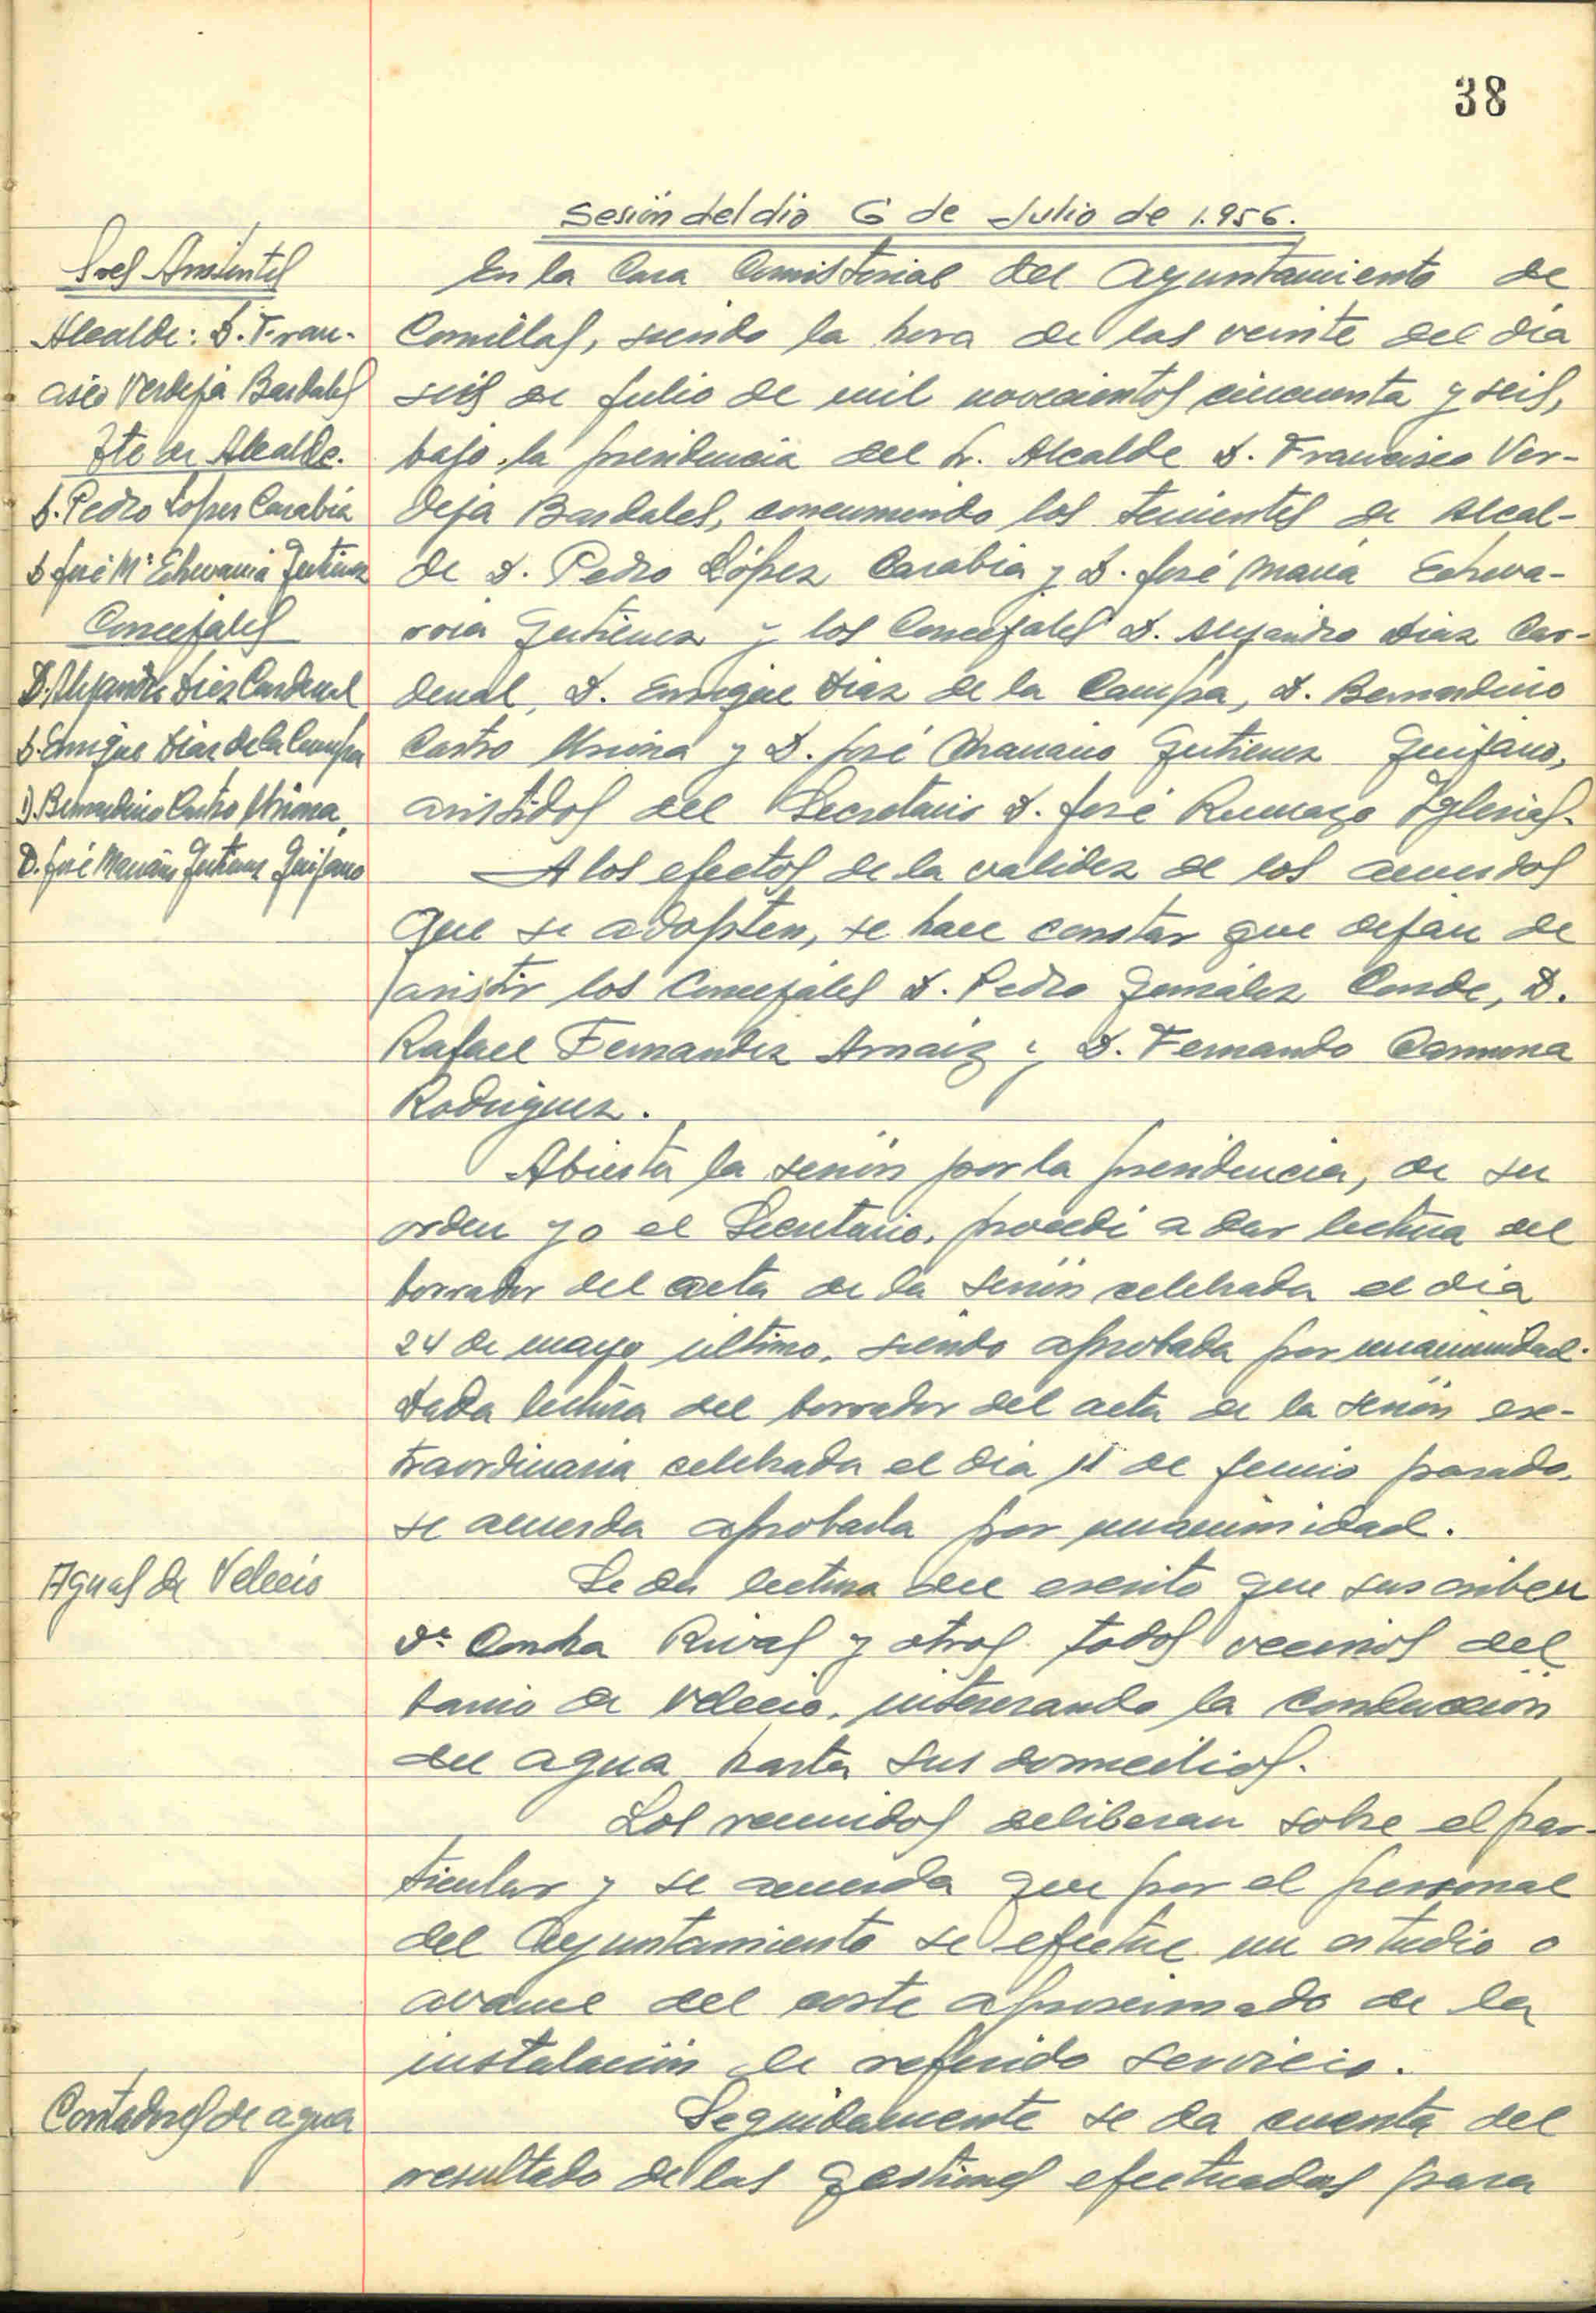 38
Sesión del día 6 de Julio de 1.956.
Sres Asistentes
Alcalde: D. Fran-
cisco Verdeja Bardales
Tte de Alcalde.
D. Pedro López Carabia
D José Mª Echevarria Gutierrez
Concejales
D. Alejandro Diez Cardenal
D. Enrique Díaz de la Campa
D. Bernardino Castro
D. José Mariano Gutierrez Quijano
En la Casa Consistorial del Ayuntamiento de
Comillas, siendo la hora de las veinte del día
seis de julio de mil novecientos cincuenta y seis,
bajo la presidencia del Sr. Alcalde D. Francisco Ver-
deja Bardales, concurriendo los tenientes de Alcal-
de D. Pedro López Carabia y D. José María Echeva-
rria Gutierrez y los Concejales D. Alejandro Diaz Car-
denal, D. Enrique Diaz de la Campa, D. Bernardino
Castro y D. José Mariano Gutierrez Quijano,
asistidos del Secretario D. José Rumazo Iglesias.
A los efectos de la validez de los acuerdos
que se adopten, se hace constar que dejan de
asistir los Concejales D. Pedro González Conde, D.
Rafael Fernandez Arnaiz y D. Fernando Carmona
Rodriguez.
Abierta la sesión por la presidencia, de su
orden yo el Secretario, procedí a dar lectura del
borrador del acta de la sesión celebrada el día
24 de mayo último, siendo aprobada por unanimidad.
Dada lectura del borrador del acta de la sesión ex-
traordinaria celebrada el día 11 de junio pasado,
se acuerda aprobarla por unanimidad.
Aguas de Velecio
Se da lectura del escrito que suscriben
Dª Concha Rivas y otros todos vecinos del
barrio de Velecio, interesando la conducción
del agua hasta sus domicilios.
Los reunidos deliberan sobre el par-
ticular y se acuerda que por el personal
del Ayuntamiento se efectue un estudio o
avance del coste aproximado de la
instalación de referido servicio.
Contadores de agua
Seguidamente se da cuenta del
resultado de las gestiones efectuadas para